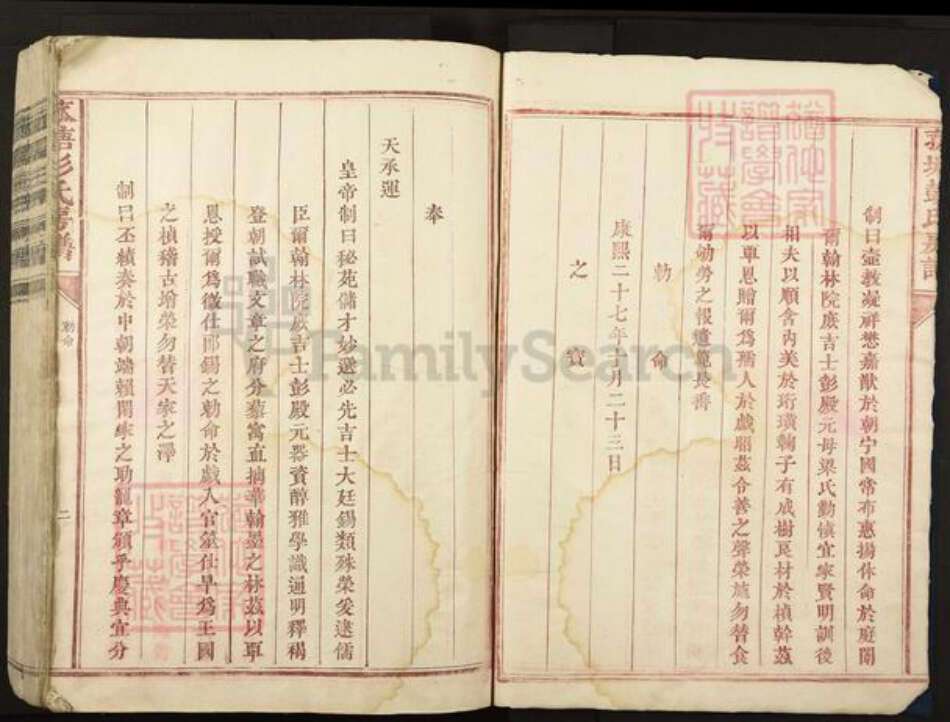 制曰壼教凝祥懋嘉猷於朝宁國常布惠揚休命於庭闈
爾翰林院庶吉士彭殿元母梁氏勤慎宜家賢明訓後
相夫以順含內美於珩璜鞠子有成樹良材於楨幹茲
以覃恩贈爾爲孺人於戲麗茲令善之聲榮施勿替食
爾劬勞之報遺範長壽
康熙二十七年十月二十三日
勅命
之寶
奉
天承運
皇帝制曰秘苑儲才妙選必先吉士大廷錫類殊榮爰逮儒
臣爾翰林院庶吉士彭殿元器資醇雅學識通明釋褐
登朝試職文章之府分藜寓直摛華翰墨之林茲以覃
恩授爾爲徵仕郎錫之勅命於戲入官筮仕早爲王國
之楨稽古增榮勿替天家之澤
制曰丕績奏於中朝端賴閨幃之助寵章頒乎慶典宜分
彭氏房譜
勅命
二
FamilySearch